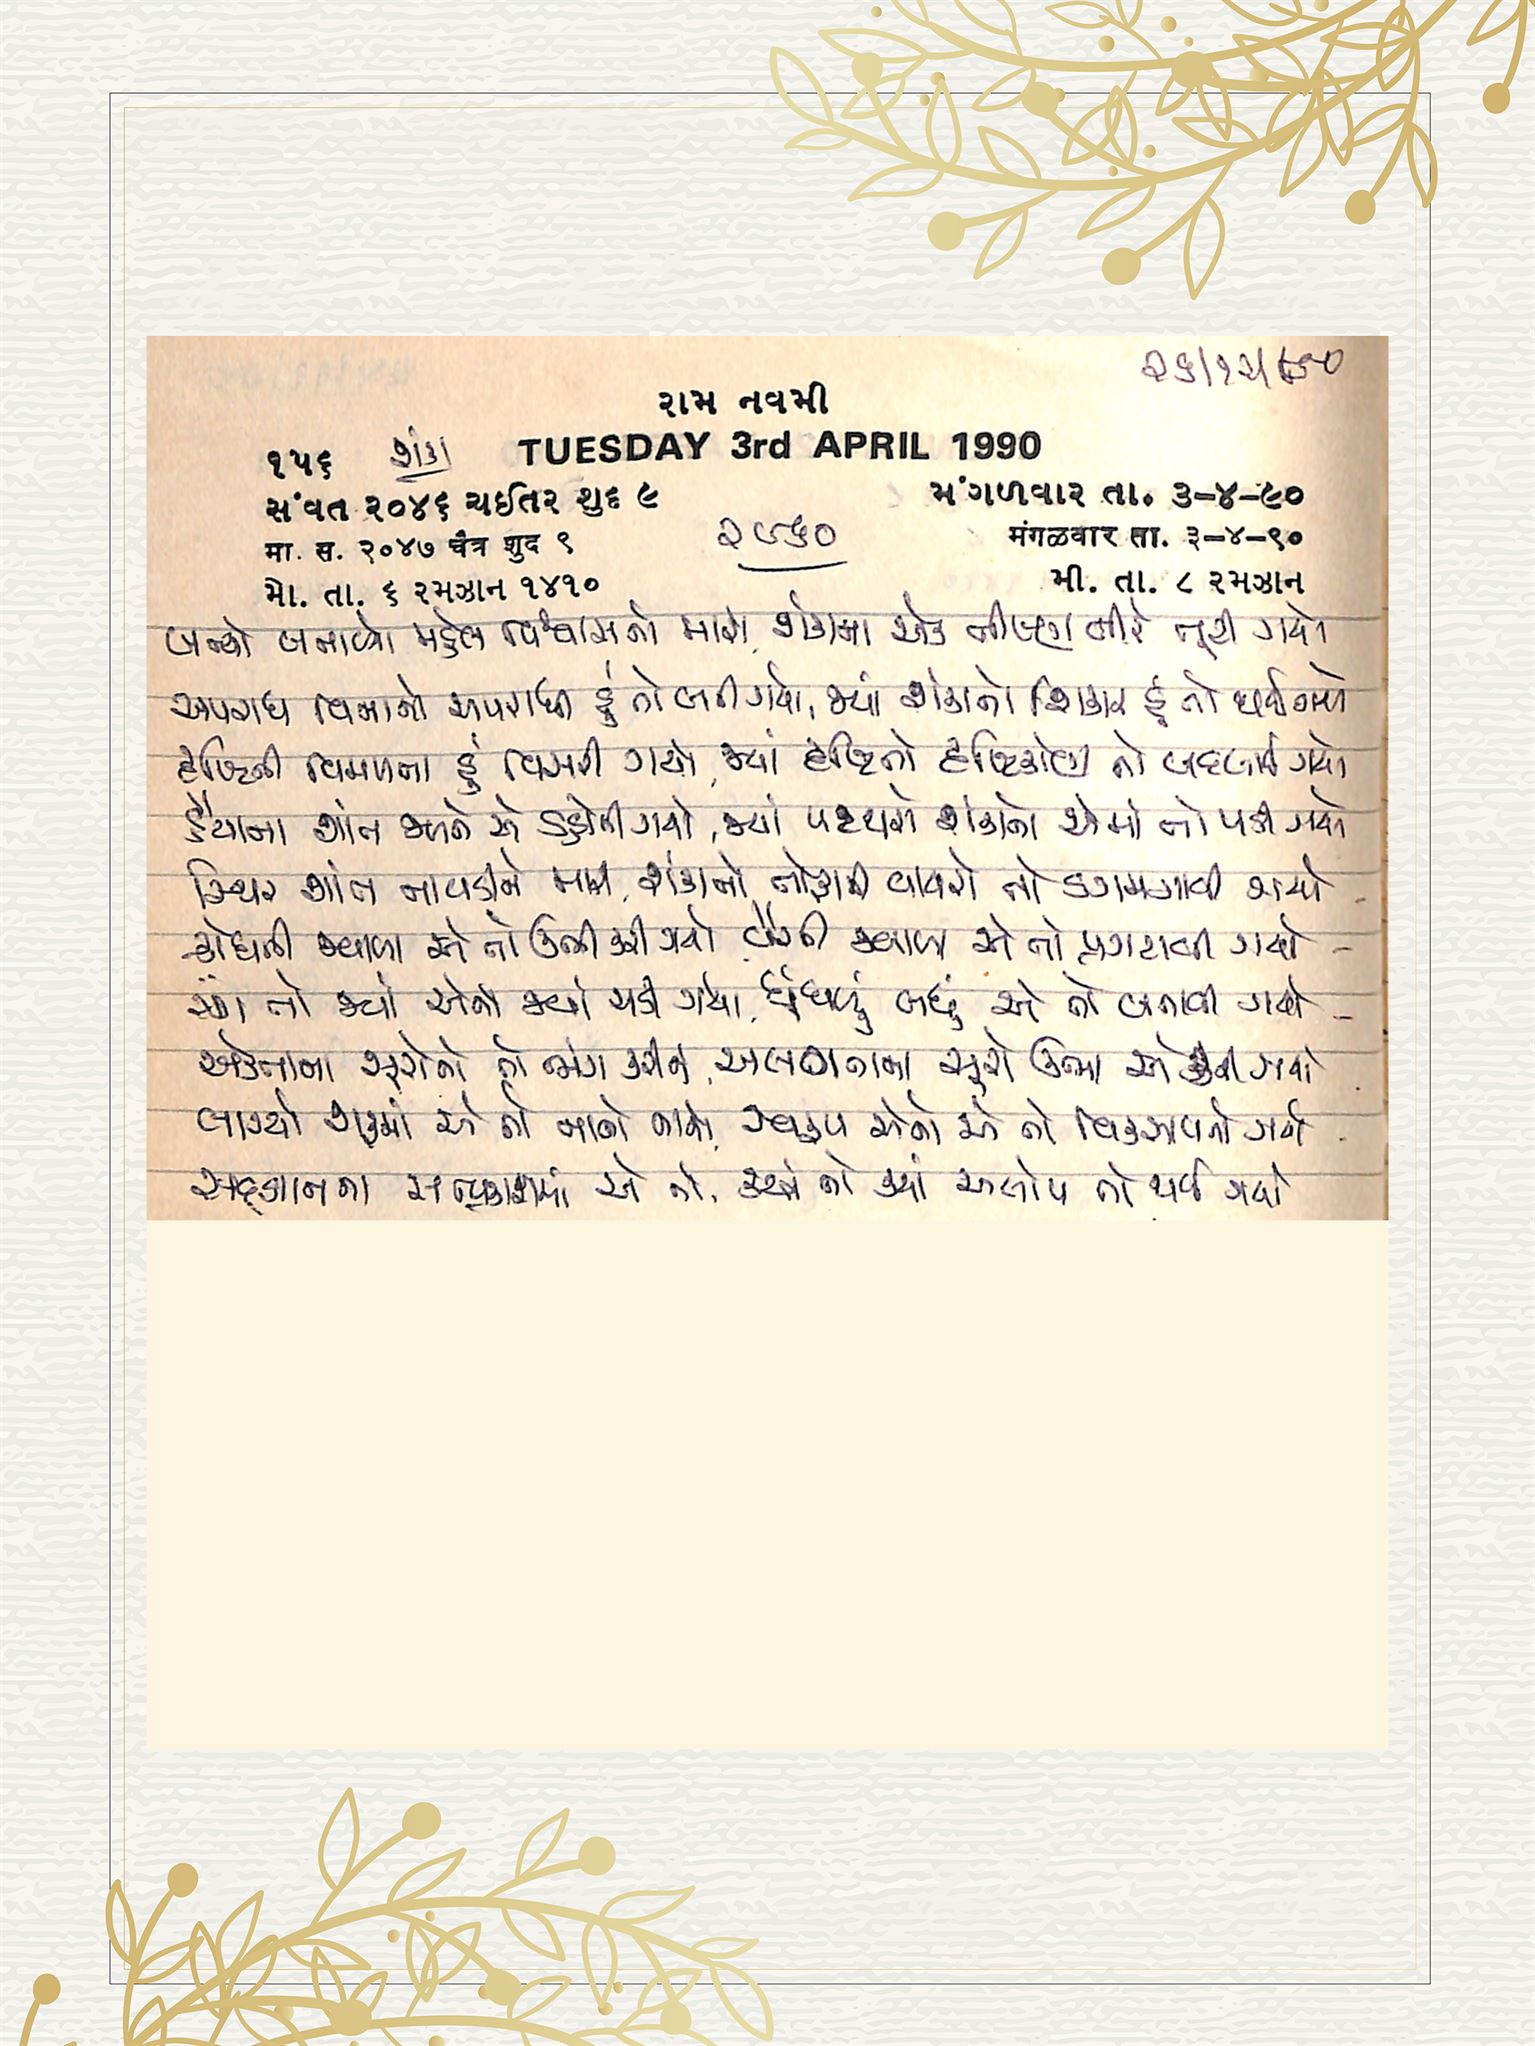 ૨૬/૧૨/૯૦
રામ નવમી
૧૫૬ શંકા TUESDAY 3rd APRIL 1990
સંવત ૨૦૪૬ ચઈતર શુદ ૯ મંગળવાર તા. ૩-૪-૯૦
मा. स. २०४७ चैत्र शुद ९ मंगळवार ता. ३-४-९०
મો. તા. ૬ રમઝાન ૧૪૧૦ મી. તા. ૮ રમઝાન
૨૯૬૦
બનાવ્યો મહેલ વિશ્વાસનો મારો, શંકાના એક તીરે તૂટી ગયો
અપરાધ વિનાનો અપરાધી હું તો બની ગયો, જ્યાં શંકાનો શિકાર હું તો થઈ ગયો
દૃષ્ટિની વિમળતા હું વિસરી ગયો, જ્યાં દૃષ્ટિનો દૃષ્ટિકોણ તો બદલાઈ ગયો
હૈયાના શાંત જળને એ ડહોળી ગયો, જ્યાં પથ્થરો શંકાનો એમાં તો પડી ગયો
સ્થિર શાંત નાવડીને મારી, શંકાનો તોફાની વાયરો તો ડગમગાવી ગયો
ક્રોધની જ્વાળા એ તો ઊભી કરી ગયો વૈરની જ્વાળા એ તો પ્રગટાવી ગયો
રંગ તો જ્યાં એનો જ્યાં ચડી ગયો, ધૂંધળું બધું એ તો બનાવી ગયો
એકતાના સૂરોનો તો ભંગ કરીને, અલગતાના સૂરો ઊભા એ કરી ગયો
લાગ્યો શરૂમાં એ તો નાનો નાનો, સ્વરૂપ એનું એ તો વિકસાવતો ગયો
સદ્જ્ઞાનના સત્પ્રકાશમાં એ તો, ક્યાં અલોપ તો થઈ ગયો